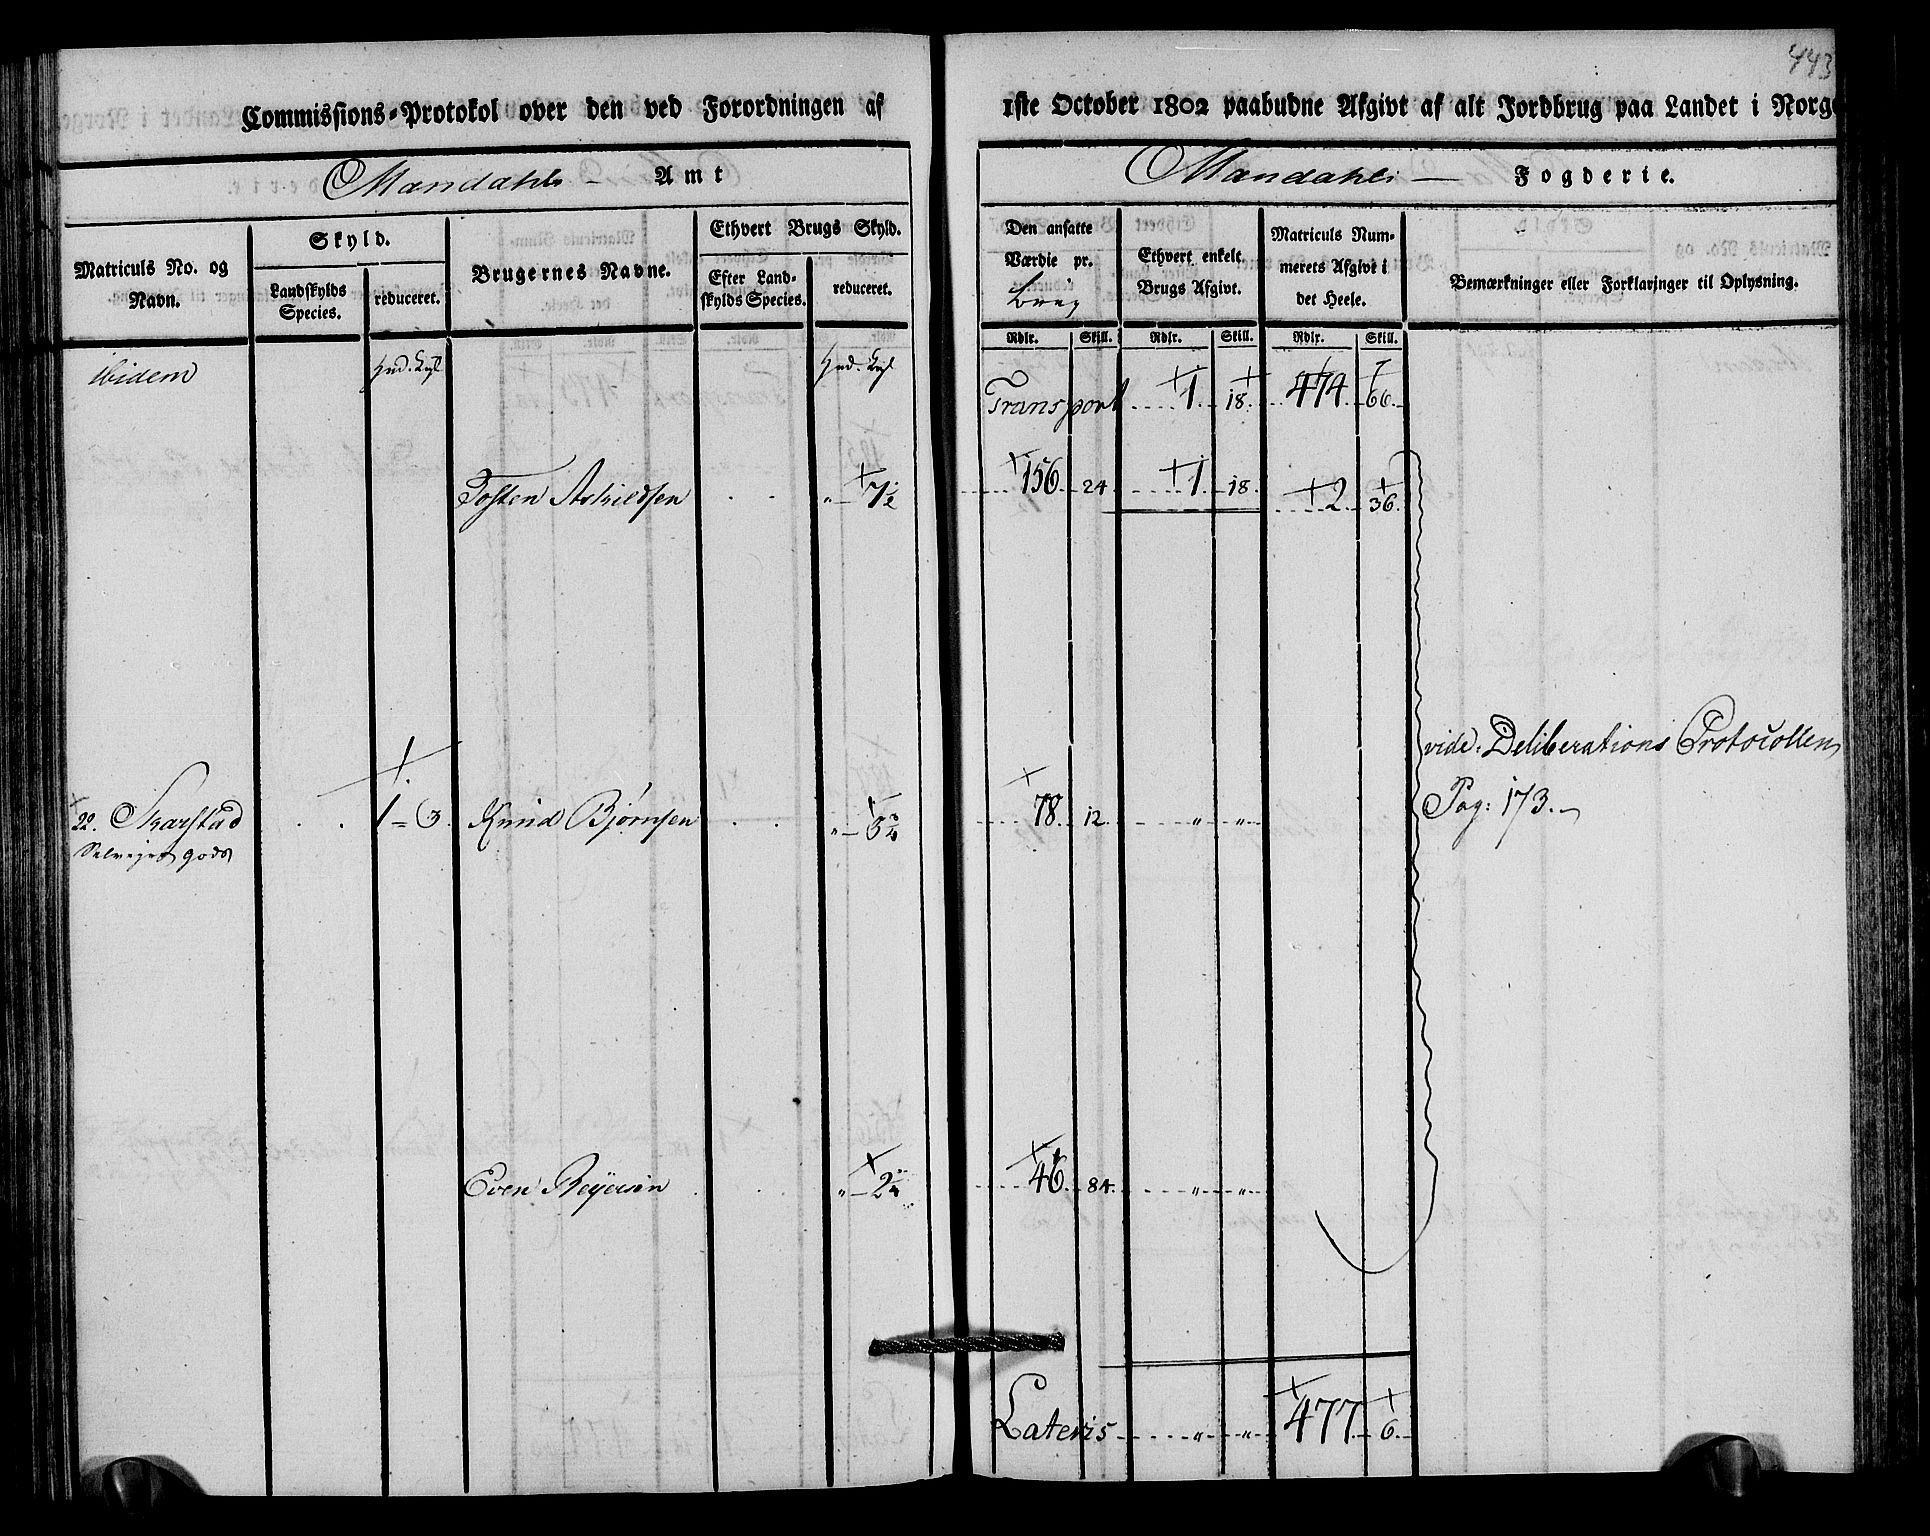 443
Commissions-Protokol over den ved Forordningen af 1ste October 1802 paabudne Afgivt af alt Jordbrug paa Landet i Norge
Mandahls Amt
Mandahls Fogderie.
Matriculs No. og Navn.
Skyld.
Landskylds Species.
reduceret.
Brugernes Navne.
Ethvert Brugs Skyld.
Efter Landskylds Species.
reduceret.
Den ansatte Værdie pr. brug
Ethvert enkelt Brugs Afgivt.
Matriculs Nummerets Afgivt i det Heele.
Bemærkninger eller Forklaringer til Oplysning.
Rdlr. Skill. Rdlr. Skill. Rdlr. Skill.
ibidem
Transport 1 18. 474 66.
Tosten Askildsen " 7½ 156 24 1 18. 2 36.
vide: Deliberations Protocollen
Pag: 173.
22. Skarstad 1 = 3. Knud Bjørnsen " 3¾ 78. 12. " "
Selvejer gods
Even Reyersen " 2¼ 46. 84. " "
Lateris " " 477 6.